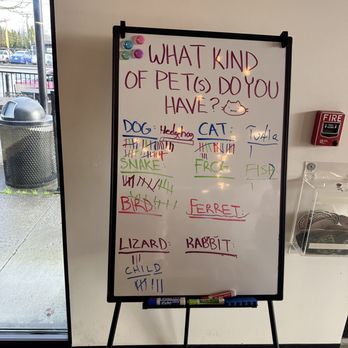 WHAT KIND
OF PET(S) DO YOU
HAVE?
DOG: Hedgehog CAT: Turtle
SNAKE: FROG FISH
BIRD: FERRET:
LIZARD: RABBIT:
CHILD
FIRE